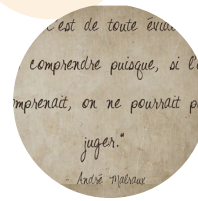 c'est de toute évid
comprendre puisque, si l'
mprenait, on ne pourrait p
juger."
- André Malraux